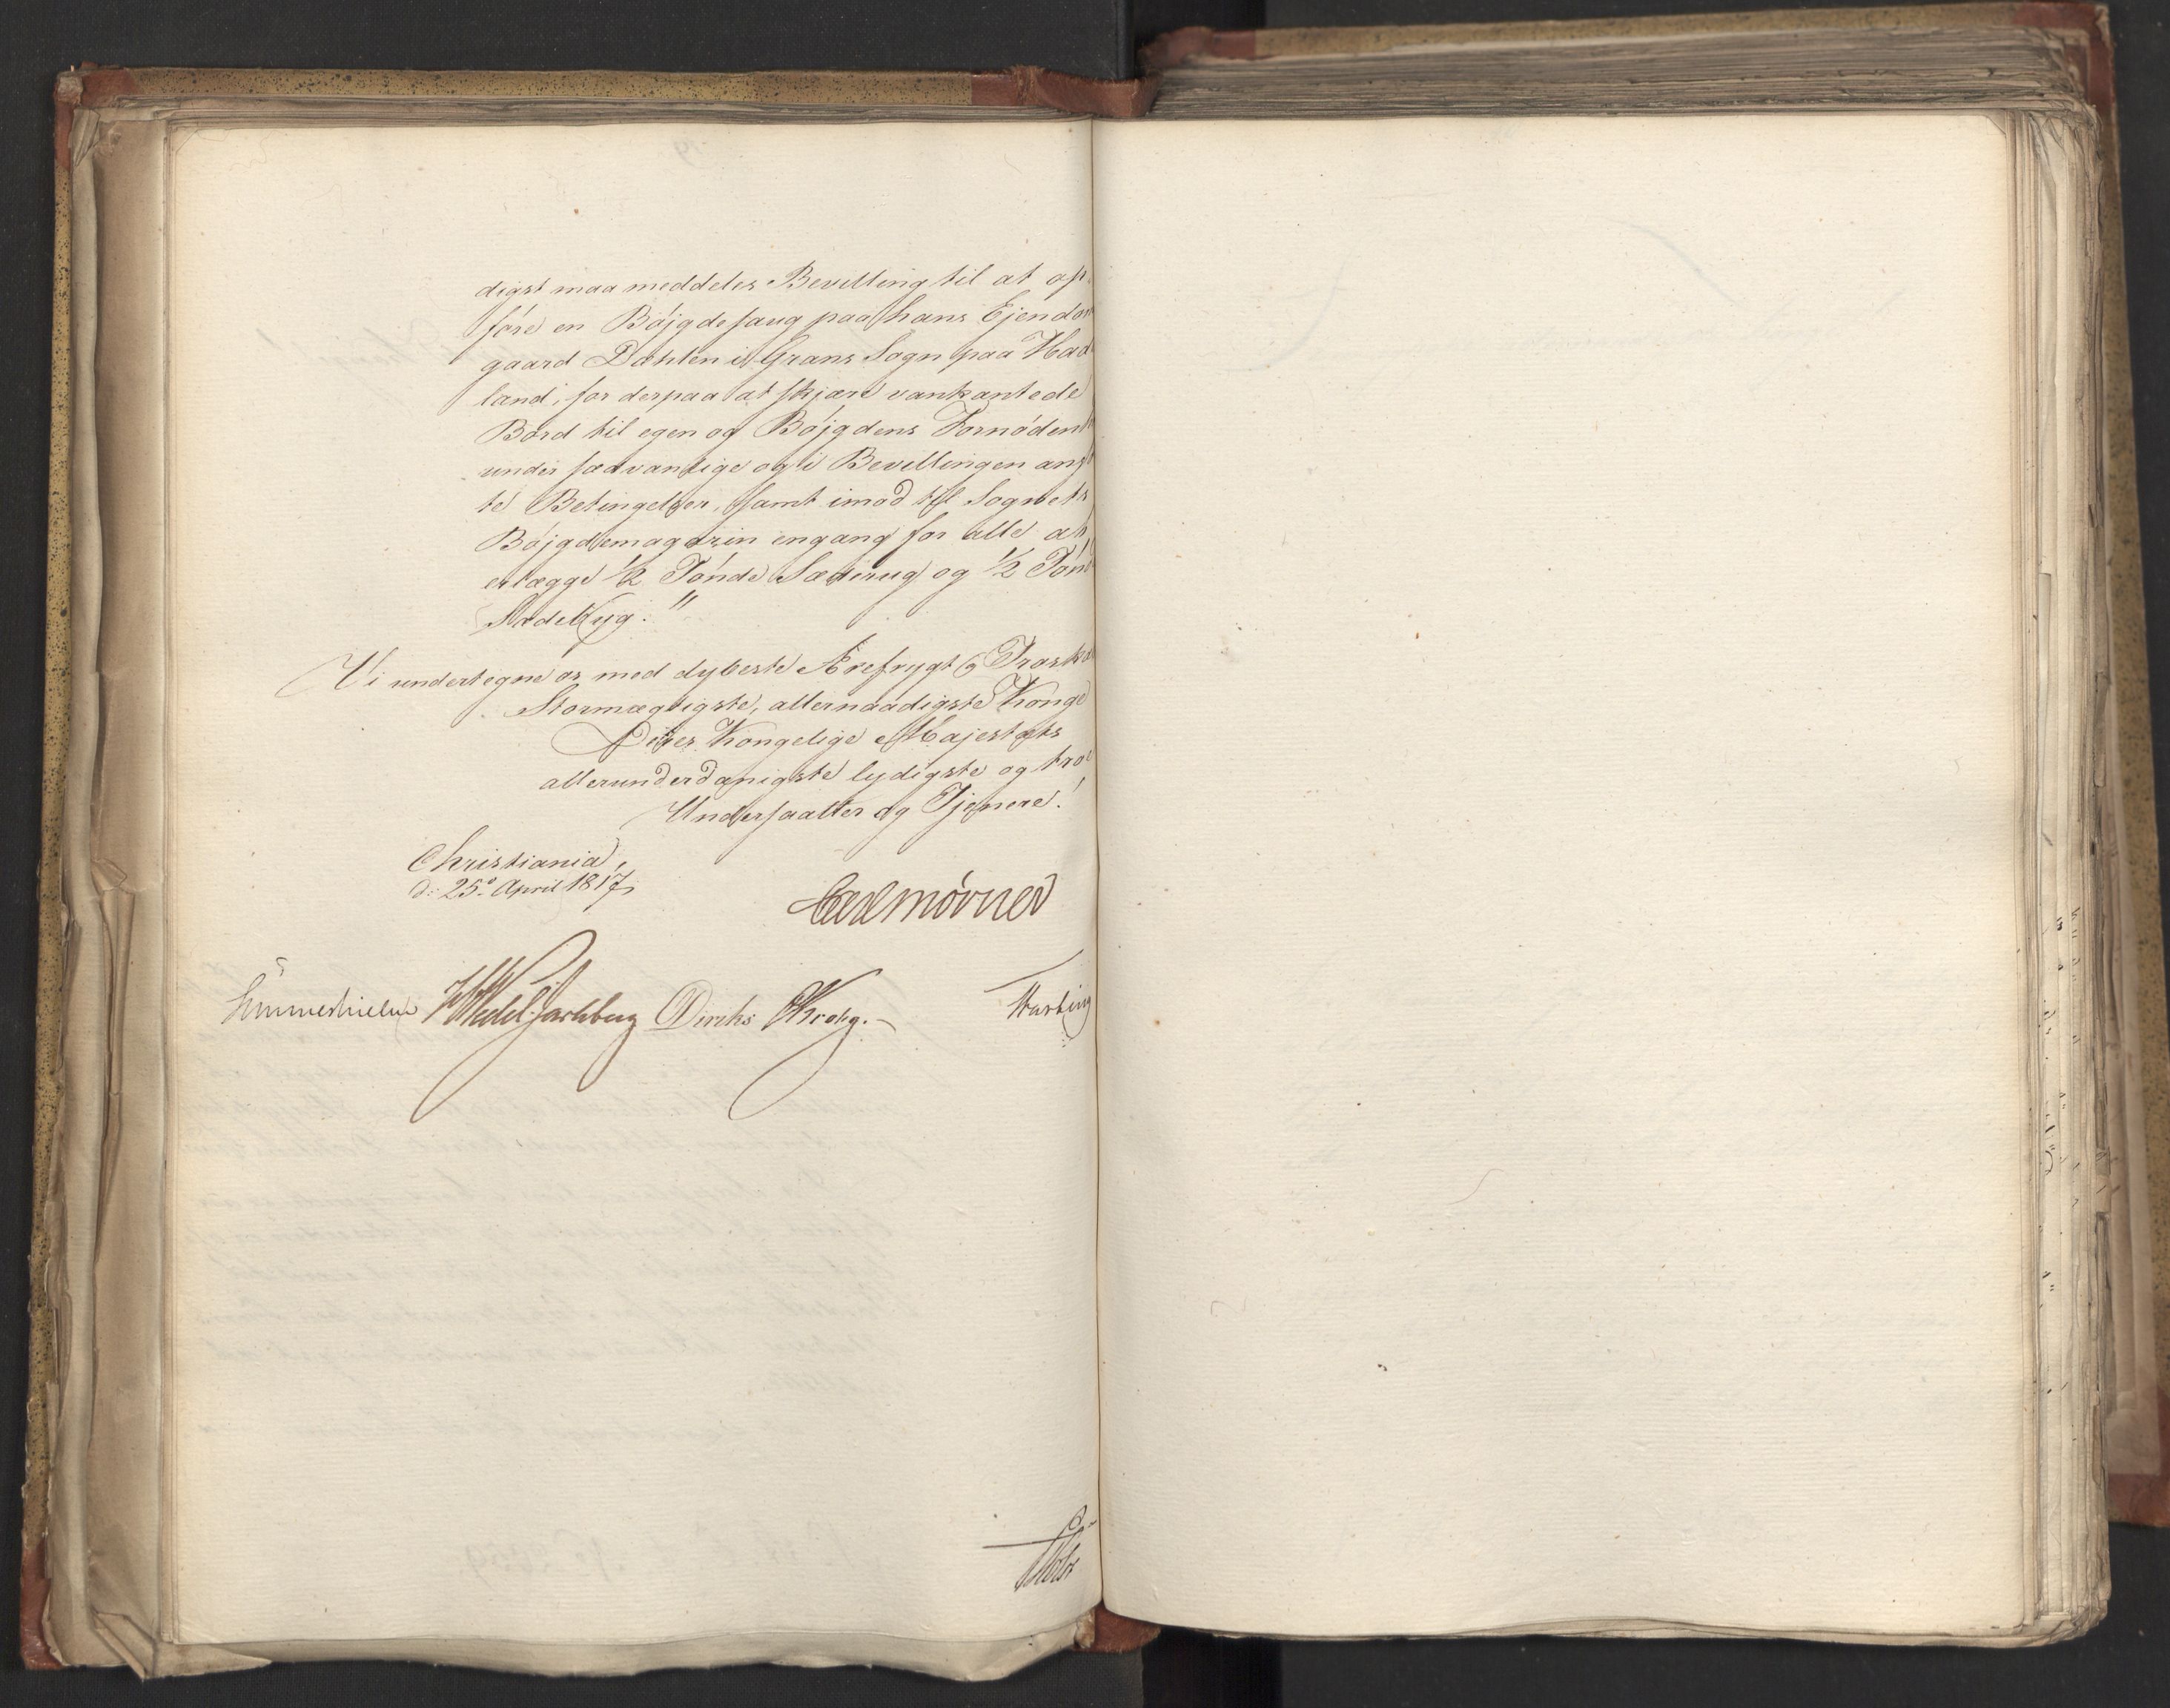 digst maa meddeles Bevilling til at op-
føre en Bøjgdesaug paa hans Ejendoms
gaard Dæhlen i Grans Sogn paa Hade
land, for derpaa at skjære vankantede
Bord til egen og Bøjgdens Fornøden
under sædvanlige og i Bevillingen anf
te Betingelser, samt imod til Sognets
Bøjgdemagazin engang for alle at
erlægge 1/2 Tønde Sæderug og 1/2 Tønde
SædeByg."
Vi undertegne os med dybeste Ærefrygt og Troskab
Stormægtigste, allernaadigste Konge
Deres Kongelige Majestæts
allerunderdanigste lydigste og troe
Undersaatter og Tjenere!
Christiania,
d: 25de April 1817,
Carl Mörner
Sommerhielm HWedel Jarlsberg Diriks CKrohg.
Hasting
Holst